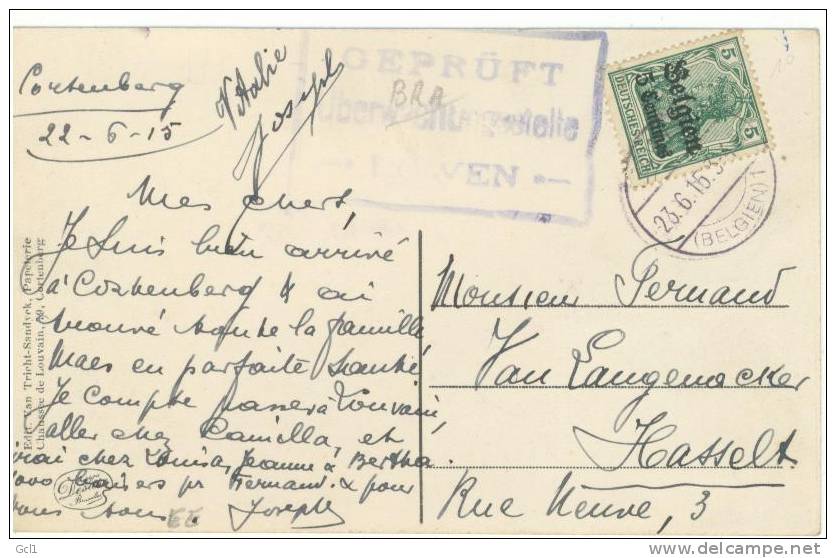 Cortenberg
22-6-15
Vitalie
Joseph
GEPRÜFT
Überwachungsstelle
BRA
5
Belgien
5 Centimes
DEUTSCHES REICH
5
23.6.15
(BELGIEN) 1
Mes chers,
Je suis bien arrivé
à Cortenberg & ai
trouvé toute la famille
Maes en parfaite santé
Je compte passer à Louvain,
aller chez Camilla, et
irai chez Louisa, Jeanne & Bertha.
baisers pr Fernand & pour
vous tous
Joseph
EE
Monsieur Fernand
Van Langenacker
Hasselt
Rue Neuve, 3
Edit. Van Tricht-Sandyck, Papeterie
Chaussée de Louvain, 59, Cortenberg
Gc1
www.delcampe.net